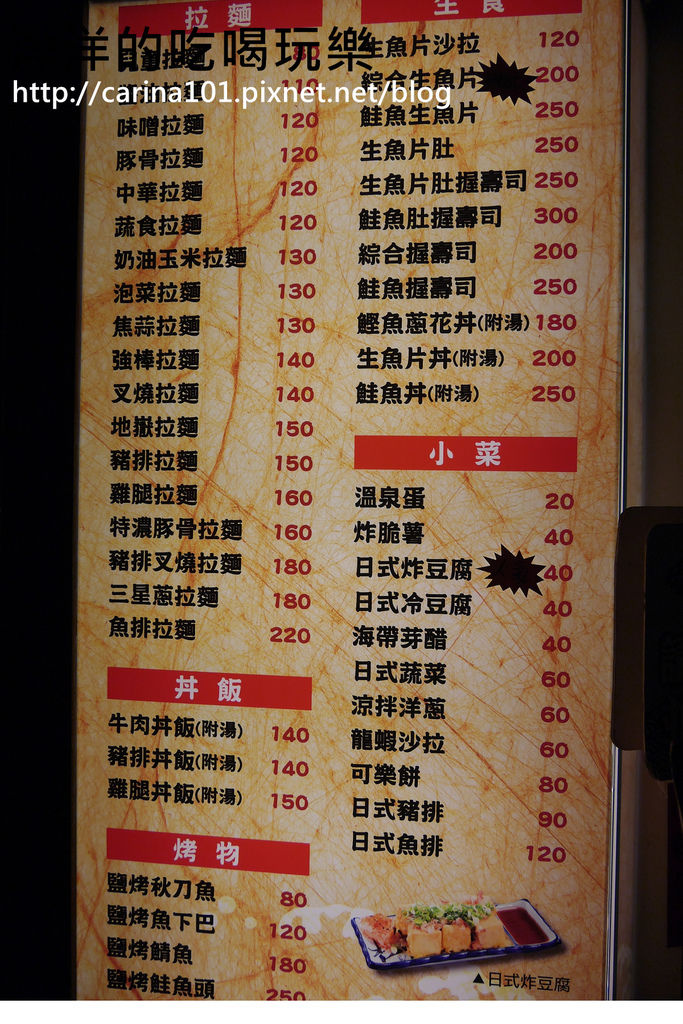 拉麵
羊的吃喝玩樂
拉麵 80
http://carina101.pixnet.net/blog
110
味噌拉麵 120
豚骨拉麵 120
中華拉麵 120
蔬食拉麵 120
奶油玉米拉麵 130
泡菜拉麵 130
焦蒜拉麵 130
強棒拉麵 140
叉燒拉麵 140
地獄拉麵 150
豬排拉麵 150
雞腿拉麵 160
特濃豚骨拉麵 160
豬排叉燒拉麵 180
三星蔥拉麵 180
魚排拉麵 220
丼飯
牛肉丼飯(附湯) 140
豬排丼飯(附湯) 140
雞腿丼飯(附湯) 150
烤物
鹽烤秋刀魚 80
鹽烤魚下巴 120
鹽烤鯖魚 180
鹽烤鮭魚頭 250
生食
生魚片沙拉 120
綜合生魚片 200
鮭魚生魚片 250
生魚片肚 250
生魚片肚握壽司 250
鮭魚肚握壽司 300
綜合握壽司 200
鮭魚握壽司 250
鰹魚蔥花丼(附湯) 180
生魚片丼(附湯) 200
鮭魚丼(附湯) 250
小菜
溫泉蛋 20
炸脆薯 40
日式炸豆腐 40
日式冷豆腐 40
海帶芽醋 40
日式蔬菜 60
涼拌洋蔥 60
龍蝦沙拉 60
可樂餅 80
日式豬排 90
日式魚排 120
▲日式炸豆腐